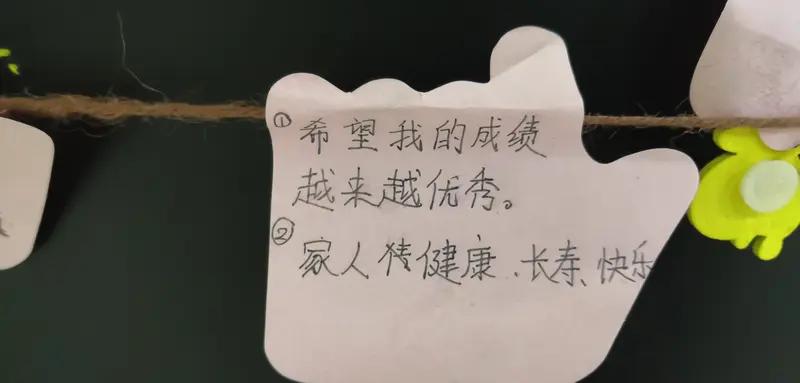 ①希望我的成绩
越来越优秀。
②家人健康、长寿、快乐